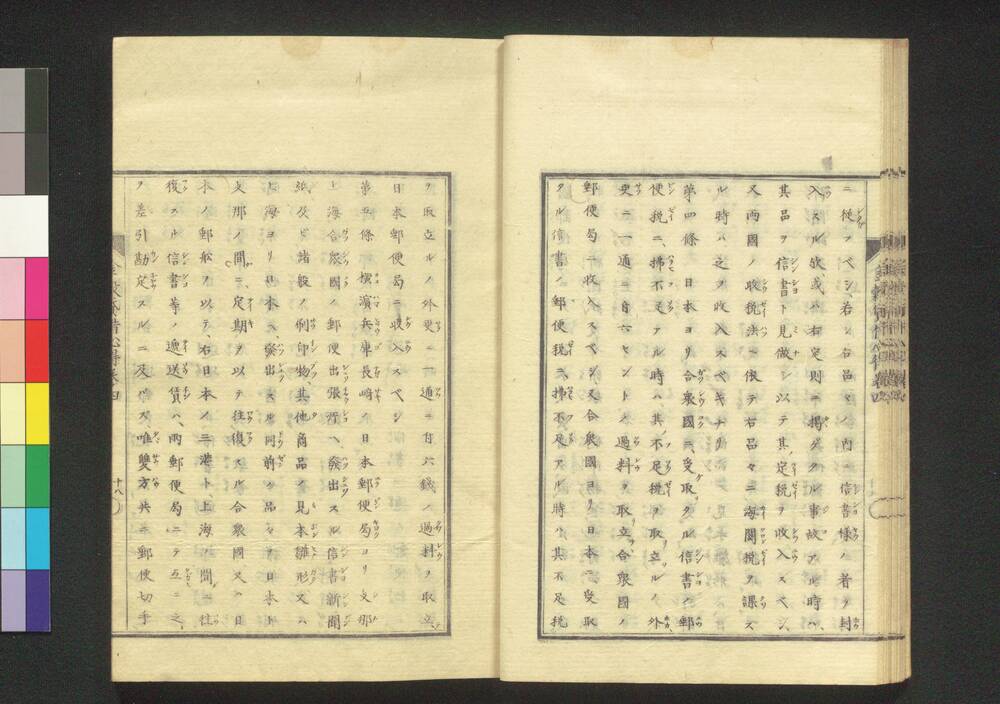 ニ従フベシ若シ右品々ノ内ニ信書様ノ者ヲ封
入スル歟或ハ右定則ニ掲グタル事故アル時ハ
其品ヲ信書ト見做シ以テ其定税ヲ收入スベシ
又両國ノ收税法ニ依テ右品々ニ海関税ヲ課ス
ル時ハ之ヲ收入スベキナリ
第四條 日本ヨリ合衆國ニ受取タル信書ノ郵
便税ニ拂不足アル時ハ其不足税ヲ取立ルノ外
更ニ一通ニ百六センントノ過料ヲ取立合衆國ノ
郵便局ニ收入スベシ又合衆國ヨリ日本ニ受取
タル信書ノ郵便税ニ拂不足アル時ハ其不足税
ヲ取立ルノ外更ニ一通ニ付六錢ノ過料ヲ取立
日本郵便局ニ收入スベシ
第五條 横濱兵庫長崎ノ日本郵便局ヨリ支那
上海合衆國ノ郵便出張所ヘ發出スル信書新聞
紙及ビ諸般ノ刷印物其他商品ノ見本雛形又ハ
上海ヨリ日本ヘ發出スル同前ノ品々ヲ日本ト
支那ノ間ニ定期ヲ以テ往復スル合衆國又ハ日
本ノ郵船ヲ以テ右日本ノ三港ト上海ノ間ニ往
復スル信書等ノ逓送賃ハ両郵便局ニテ互ニ之
ヲ差引勘定スルニ及バズ唯雙方共ニ郵便切手
十八